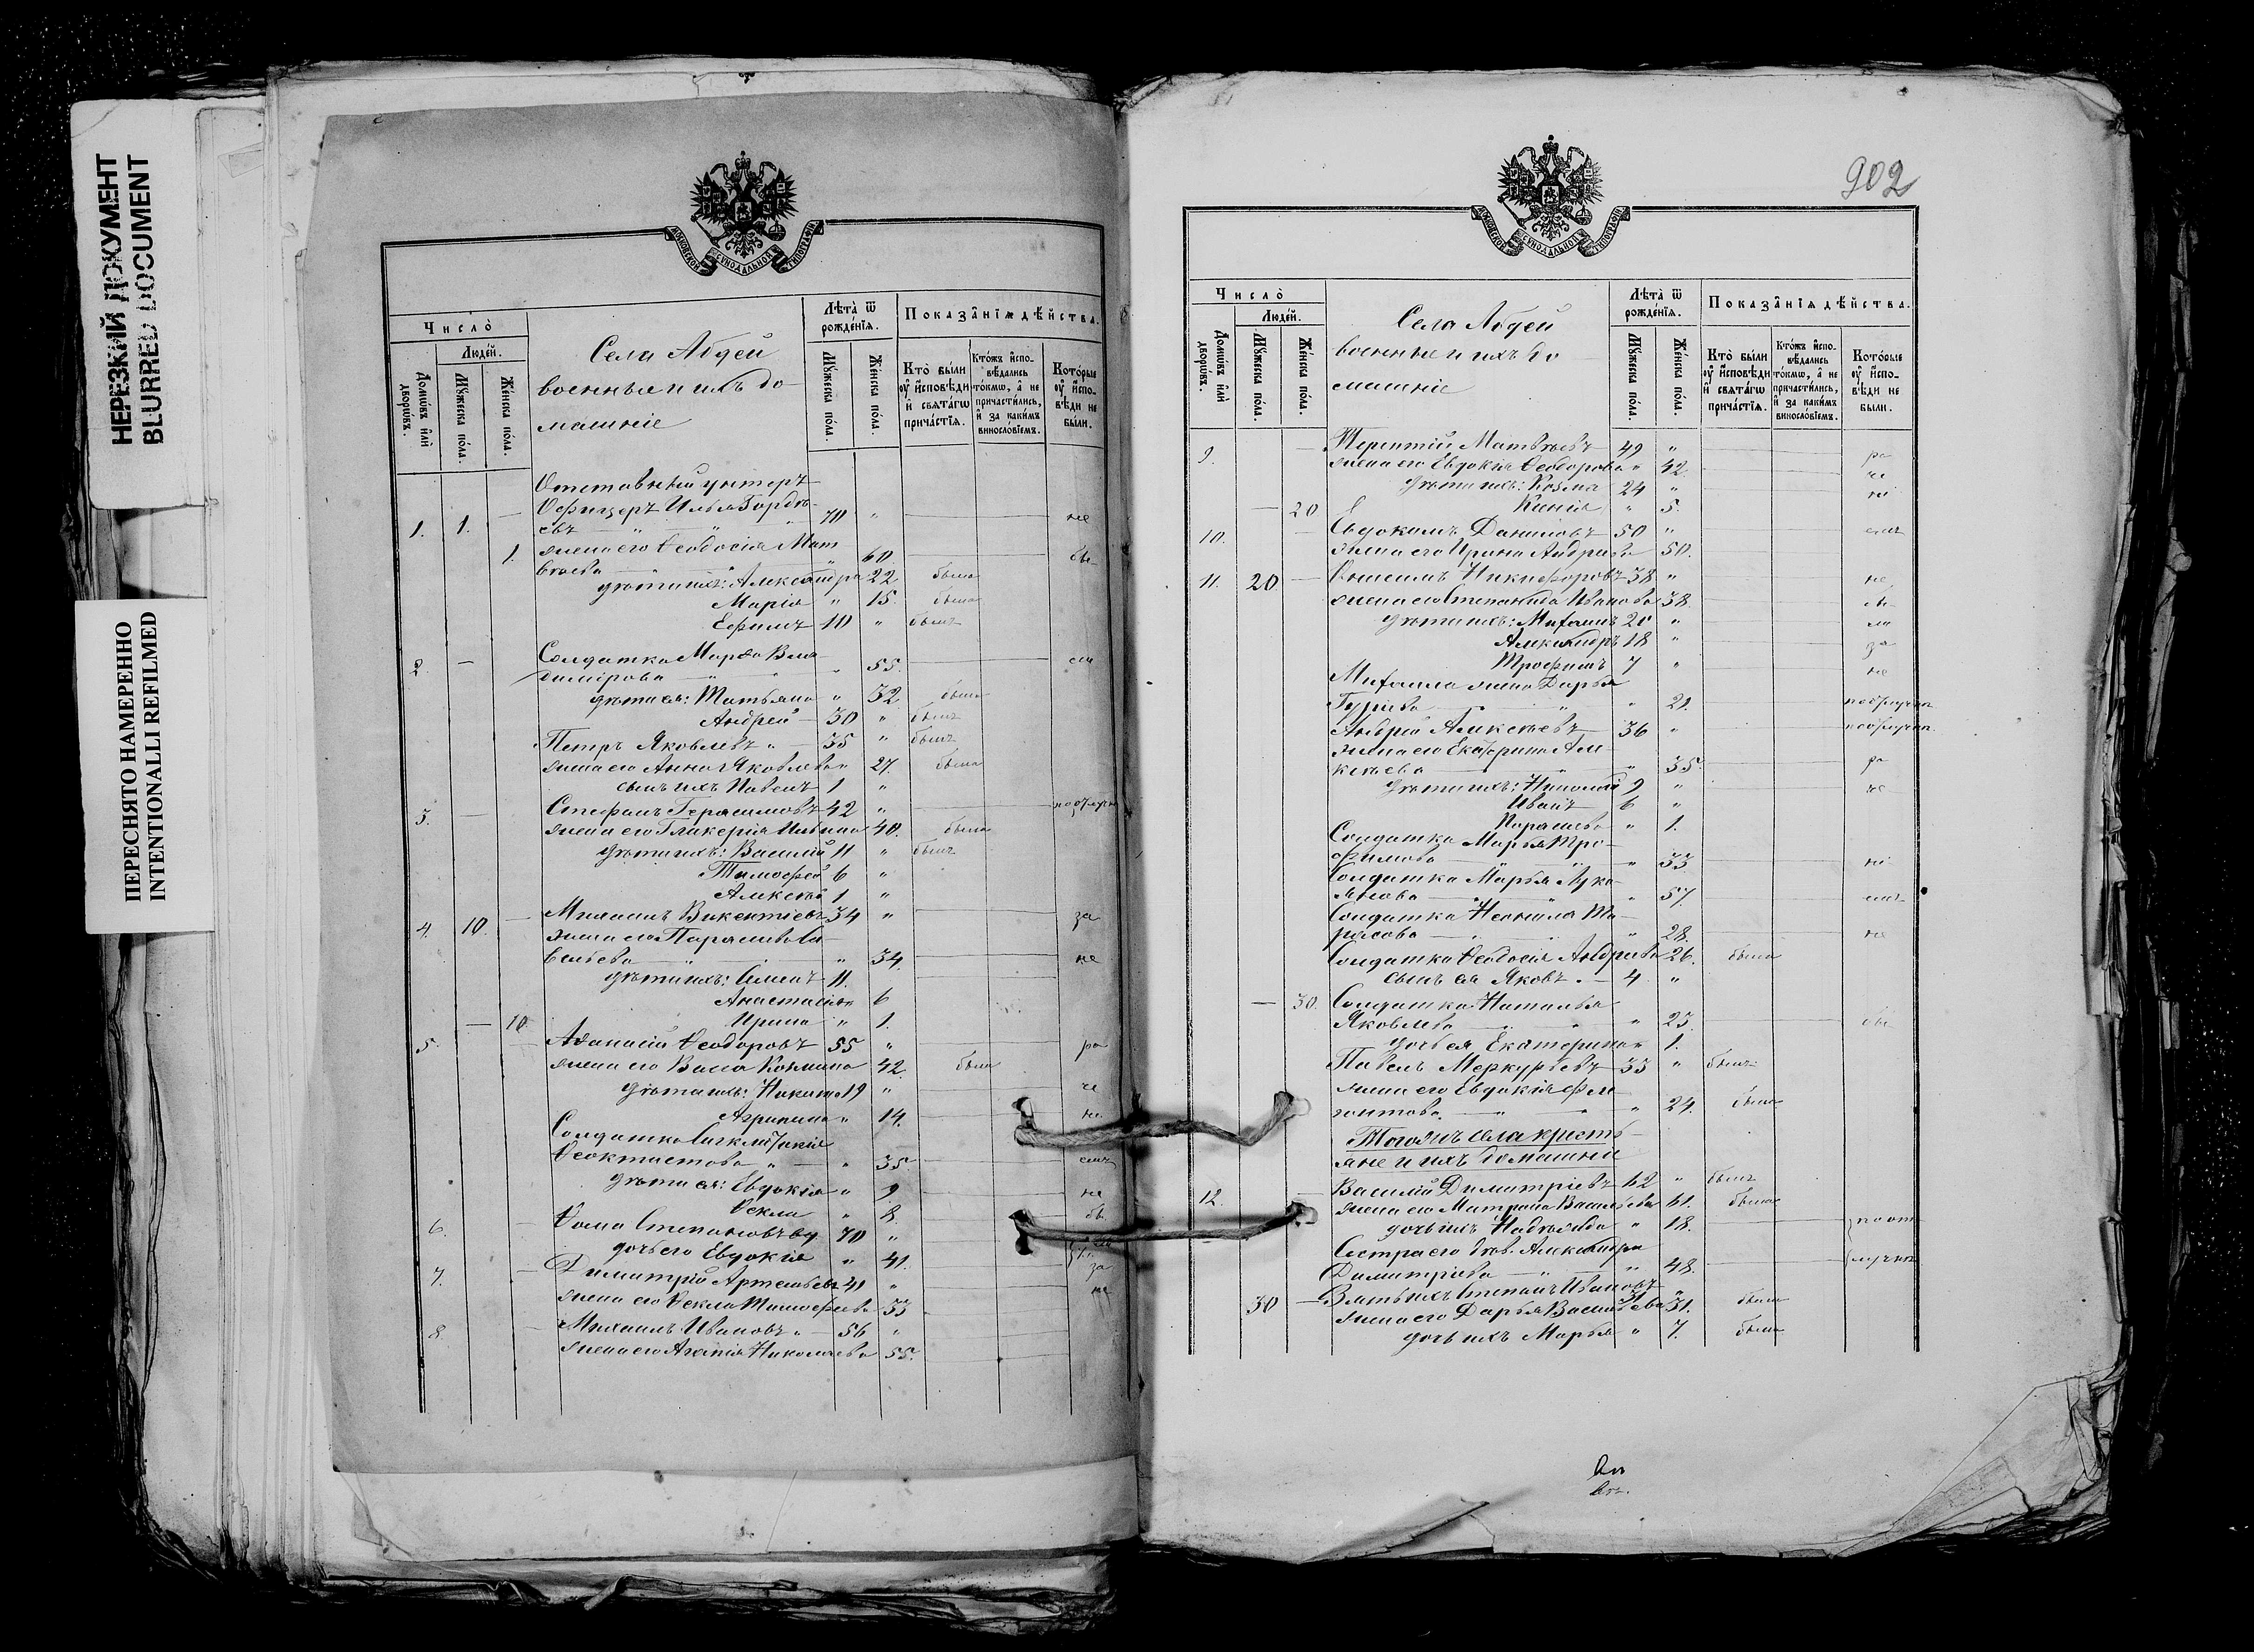 НЕРЕЗКИЙ ДОКУМЕНТ
BLURRED DOCUMENT
ПЕРЕСНЯТО НАМЕРЕННО
INTENTIONALLI REFILMED
МОСКОВСКОЙ СУНОДАЛЬНОЙ ТИПОГРАФІИ
Число̀
Люде́й.
Домѡ́въ и҆лѝ дворѡ́въ.
Мꙋ́жеска по́ла.
Же́нска по́ла.
Села Абдей
военные и ихъ до-
машніе
Лѣта̀ ѿ рожде́нїѧ.
Мꙋ́жеска по́ла.
Же́нска по́ла.
Показа̑нїѧ дѣ́йства.
Кто̀ бы́ли оу҆ и҆сповѣ́ди и҆ свѧта́гѡ прича́стїѧ.
Кто́жъ и҆спо-вѣ́дались то́кмѡ, а҆ не причасти́лись, и҆ за каки́мъ винослѡ́вїемъ.
Кото́рые оу҆ и҆спо-вѣ́ди не бы́ли.
Отставный унтеръ
Офицеръ Илья Гордѣ-
1. 1. — евъ 70 " не
1. жена его Ѳеодосія Мат
вѣева " 60 бы
дѣти ихъ: Александра 22 была
Марія " 15. была
Ефимъ 10 " былъ
Солдатка Марѳа Вла-
2. — димірова " 55. ли
дѣти ея: Татьяна " 32 была
Андрей 30 " былъ
Петръ Яковлевъ " 35 " былъ
жена его Анна Яковлева " 27. была
сынъ ихъ Павелъ 1 "
3. — Стефанъ Герасимовъ 42 "
жена его Гликерія Ильина 40. была
дѣти ихъ: Василій 11 " былъ
Тимофей 6 "
Алексѣй 1 "
4. 10. — Михаилъ Викентіевъ 34 " за
жена его Параскева Са-
вельева " 34. не
дѣти ихъ: Симеонъ 11.
Анастасія " 6
— 10 Ирина " 1.
5. Аѳанасій Ѳеодоровъ 55 " ра
жена его Васса Козмина 42. была
дѣти ихъ: Никита 19 " че
Агрипина " 14. ні
Солдатка Сигклитикія
Ѳеоктистова " " 35 емъ
дѣти ея: Евдокія " 9. не
Ѳекла " 8. бы
6. Ѳома Степановъ вд 70 "
дочь его Евдокія " 41.
7. Димитрій Артемьевъ 41 " за
жена его Ѳекла Тимофеева 33 не
8. Михаилъ Ивановъ " 56 "
жена его Агапія Николаева 55.
902
МОСКОВСКОЙ СУНОДАЛЬНОЙ ТИПОГРАФІИ
Число̀
Люде́й.
Домѡ́въ и҆лѝ дворѡ́въ.
Мꙋ́жеска по́ла.
Же́нска по́ла.
Села Абдей
военные и ихъ до
машніе
Лѣта̀ ѿ рожде́нїѧ.
Мꙋ́жеска по́ла.
Же́нска по́ла.
Показа̑нїѧ дѣ́йства.
Кто̀ бы́ли оу҆ и҆сповѣ́ди и҆ свѧта́гѡ прича́стїѧ.
Кто́жъ и҆спо-вѣ́дались то́кмѡ, а҆ не причасти́лись, и҆ за каки́мъ винослѡ́вїемъ.
Кото́рые оу҆ и҆спо-вѣ́ди не бы́ли.
9. Терентій Матвѣевъ 49 " ра
жена его Евдокія Ѳеодорова " 42 че
дѣти ихъ: Козма 24 " ні
— 20 Ксенія " 5.
10. Евдокимъ Даниловъ 50 " емъ
жена его Ирина Андреева 50.
11. 20 — Онисимъ Никифоровъ 38 " не
жена его Степанида Иванова 38. бы
дѣти ихъ: Михаилъ 20 " ли
Александръ 18 " за
Трофимъ 7 " не
Михаила жена Дарья
Гуріева " 21.
Андрей Алексѣевъ 36 "
жена его Екатерина Але-
ксѣева " 35. ра
дѣти ихъ: Николай 9 " че
Иванъ 6 "
Параскева " 1.
Солдатка Марья Тро-
фимова " 33 ні
Солдатка Марья Лука-
янова " 57. емъ
Солдатка Неонила Та-
расова " 28. не
Солдатка Ѳеодосія Андреева 26. была
сынъ ея Яковъ 4 "
— 30. Солдатка Наталья
Яковлева " 23. бы
дочь ея Екатерина " 1.
Павелъ Меркурьевъ 33 " былъ
жена его Евдокія Фле
гонтова " 24. была
Тогожъ села кресть-
яне и ихъ домашніе
12. Василій Димитріевъ 62 " былъ
жена его Матрона Васильева 61. была
дочь ихъ Надежда " 18. по от
Сестра его дѣв. Александра
Димитріева " 48. лучкѣ
30 — Зять ихъ Степанъ Ивановъ
жена его Дарья Васильева 31. была
дочь ихъ Марья " 7. была